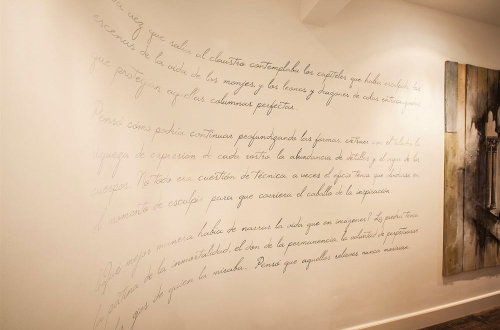 vez que salía al claustro contemplaba los capiteles que había esculpido, las
escenas de la vida de los monjes, y los leones y dragones de colas entrelazadas
que protegían aquellas columnas perfectas.
Pensó cómo podría continuar profundizando las formas, extraer con el talento la
riqueza de expresión de cada rostro, la abundancia de detalles y el vigor de los
cuerpos. No todo era cuestión de técnica, a veces el oficio tenía que
el momento de esculpir para que corriera el caballo de la inspiración.
¿Qué mejor manera había de narrar la vida que en imágenes? La piedra tenía
la pátina de la inmortalidad, el don de la permanencia, la voluntad de perpetuarse
ojos de quien la miraba. Pensó que aquellos relieves nunca morirían.